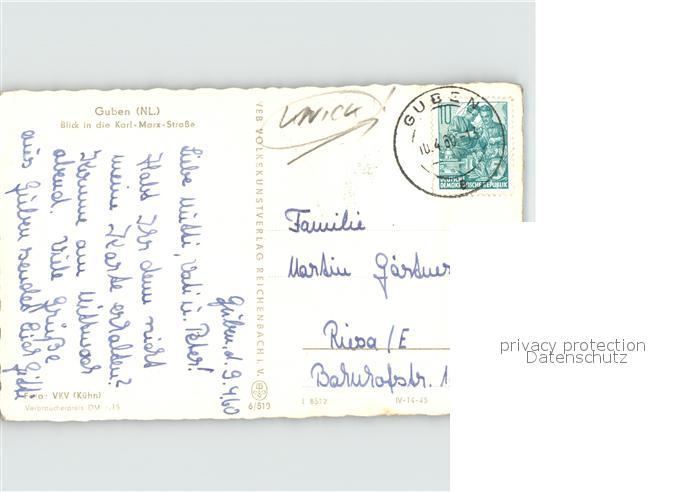 Guben (NL.)
Blick in die Karl-Marx-Straße
Guben, d. 9.4.60
Liebe Mutti, Vati u. Peter!
Habt Ihr denn nicht
meine Karte erhalten?
Komme am Mittwoch
abend. Viele Grüße
aus Guben sendet Euch
Foto: VKV (Kühn)
Verbraucherpreis DM -,15
VEB VOLKSKUNSTVERLAG REICHENBACH I. V.
6/519
GUBEN
10.4.60
10
DEUTSCHE
DEMOKRATISCHE REPUBLIK
Familie
Martin Gärtner
Riesa/E
Bahnhofstr. 1
I 8512 IV-14-45
privacy protection
Datenschutz